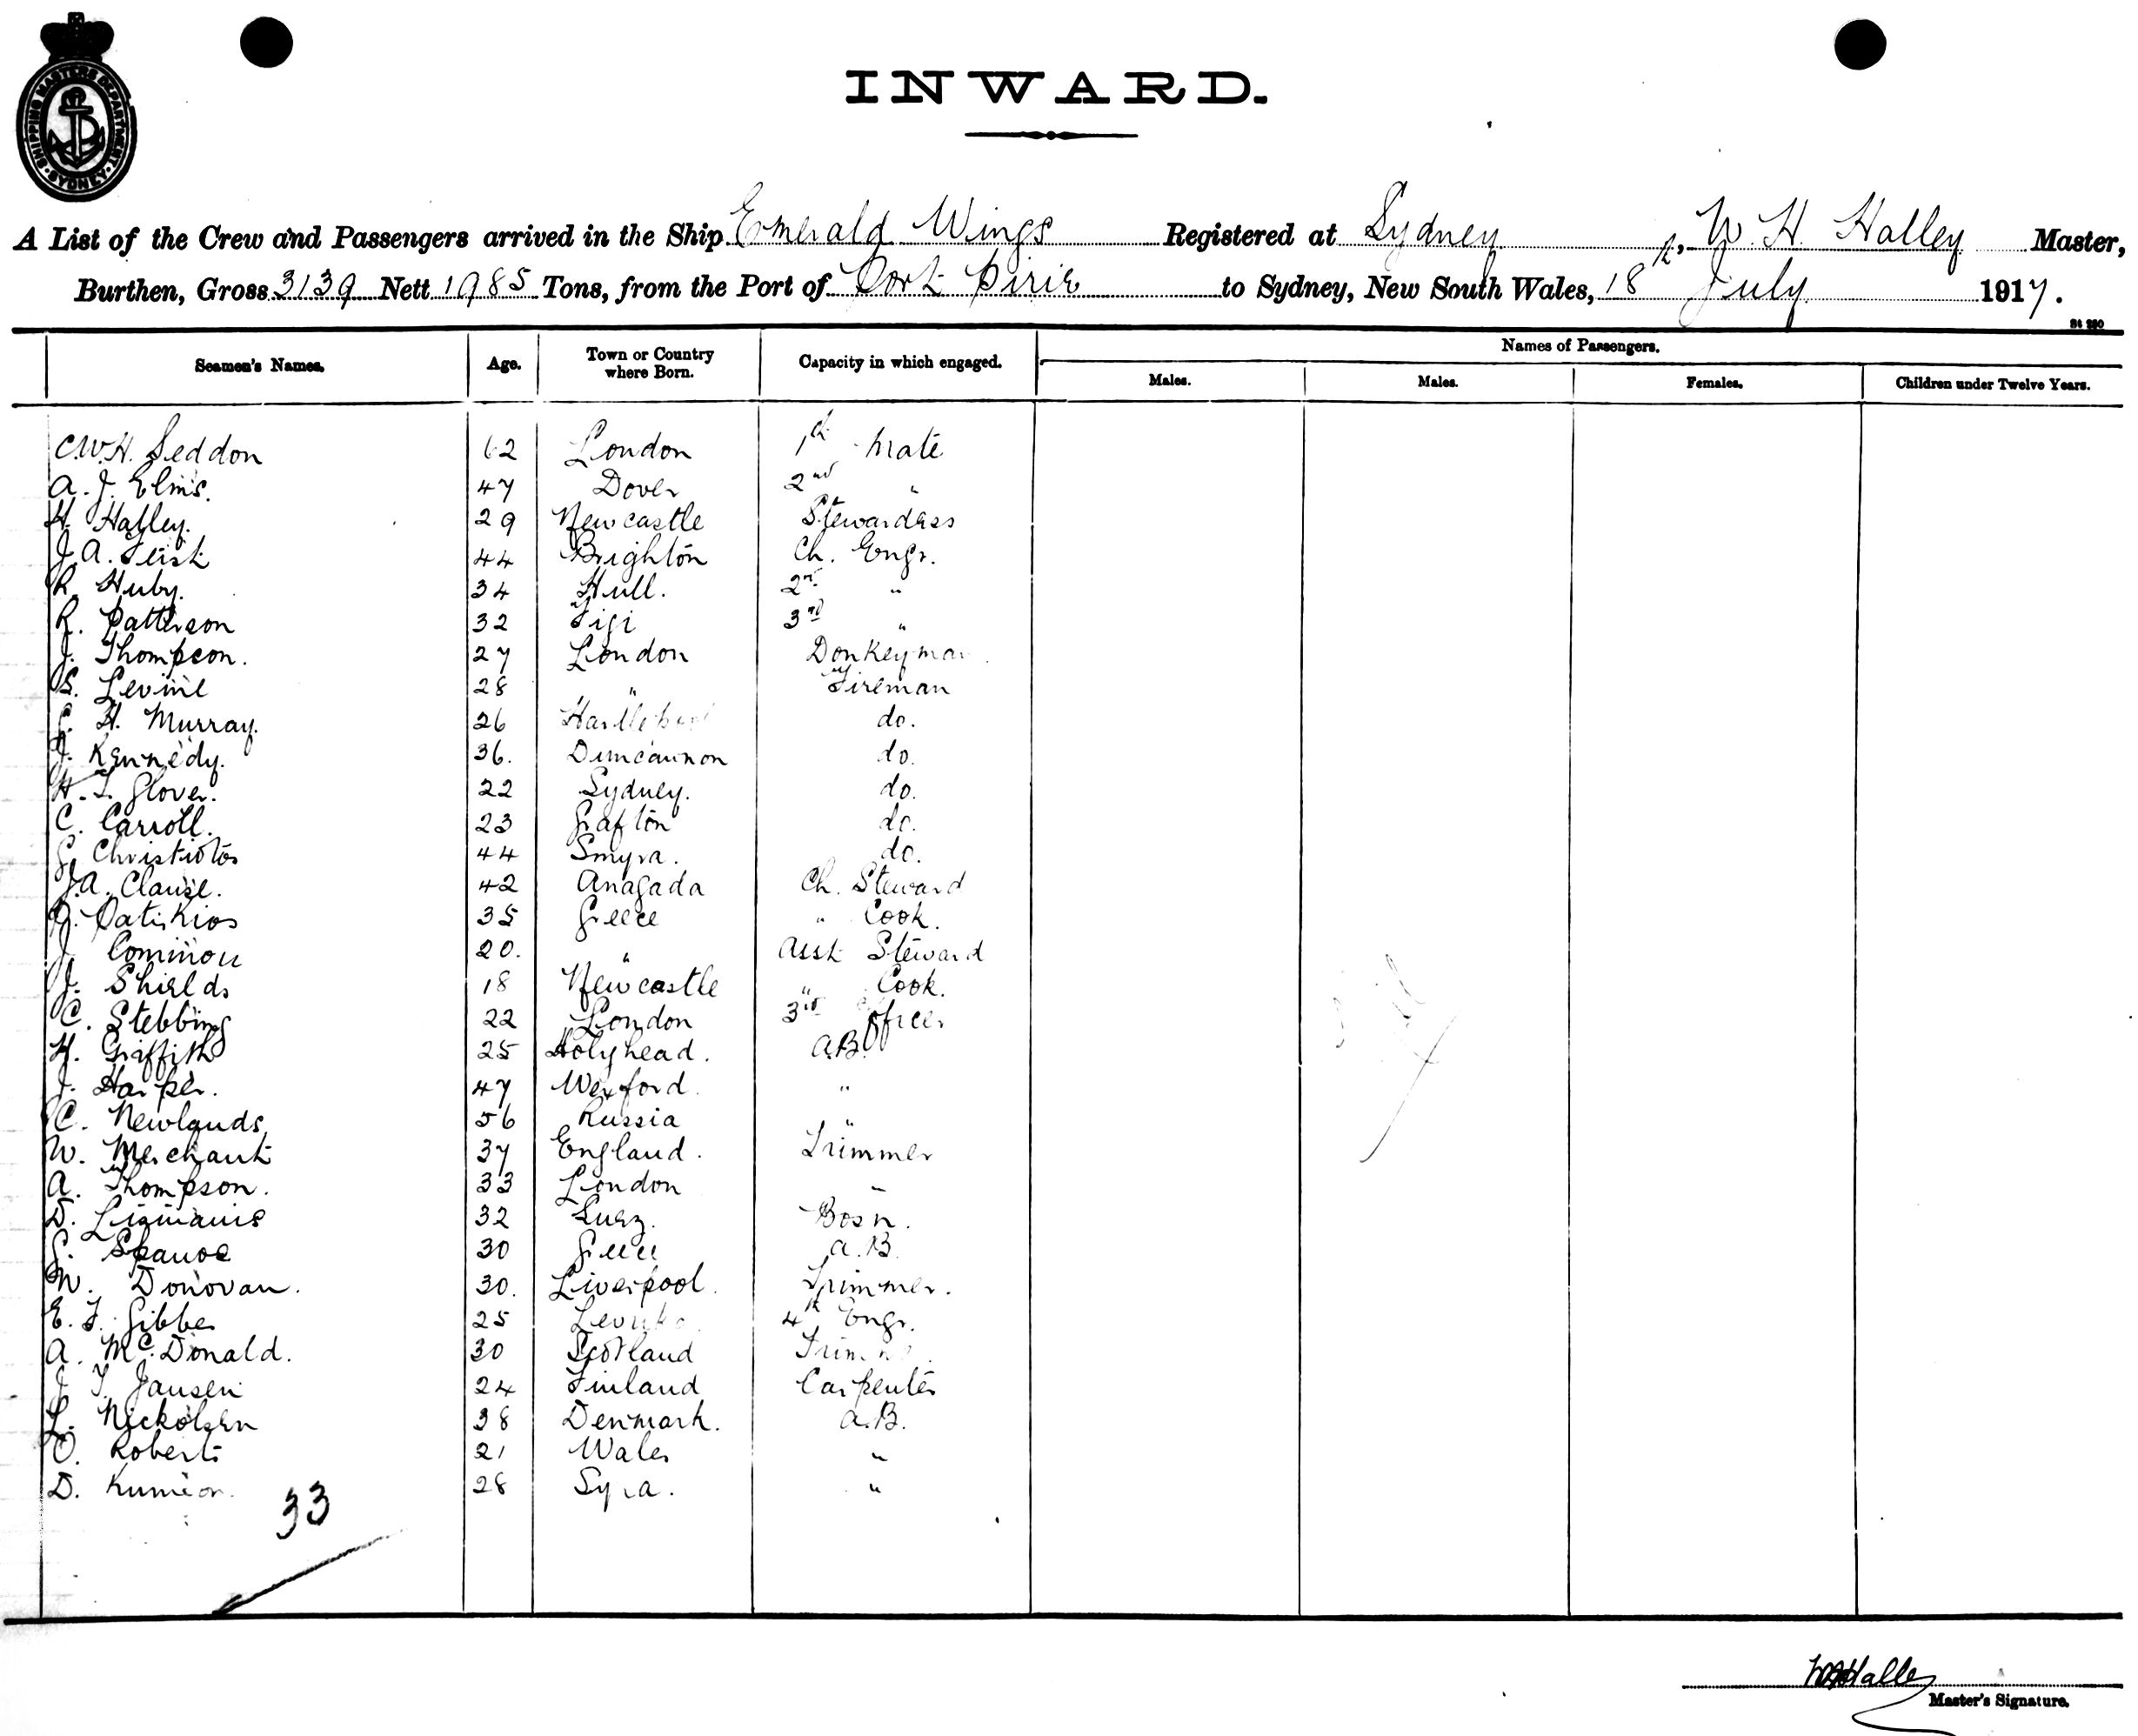 SHIPPING MASTERS DEPARTMENT · SYDNEY ·
INWARD.
A List of the Crew and Passengers arrived in the Ship Emerald Wings Registered at Sydney, W. H. Halley Master,
Burthen, Gross 3139 Nett 1985 Tons, from the Port of Port Pirie to Sydney, New South Wales, 18th July 1917.
St 290
Seamen's Names. Age. Town or Country where Born. Capacity in which engaged. Names of Passengers.
Males. Males. Females. Children under Twelve Years.
C.W.H. Seddon 62 London 1st Mate
A. J. Elms. 47 Dover 2nd "
H. Halley. 29 Newcastle Stewardess
J. A. 44 Brighton Ch. Engr.
R. Huby. 34 Hull. 2nd "
R. Patterson 32 Fiji 3rd "
J. Thompson. 27 London Donkeyman
S. Levine 28 " Fireman
H. Murray. 26 do.
J. Kennedy. 36. Duncannon do.
H. Glover. 22 Sydney. do.
C. Carroll. 23 Grafton do.
G. Christiotos 44 Smyra. do.
J.A. Clause. 42 Anagada Ch. Steward
35 Greece " Cook.
J. Cominou 20. " Asst Steward
J. Shields 18 Newcastle " Cook.
C. Stebbing 22 London 3rd Officer
H. Griffith 25 Holyhead. A.B.
J. Harper. 47 Wexford. "
C. Newlands 56 Russia "
W. Merchant 37 England. Trimmer
A. Thompson. 33 London "
D. 32 Bosn.
G. Spanos 30 Greece A.B.
W. Donovan. 30. Liverpool. Trimmer.
E. F. Gibbes 25 Levuka 4th Engr.
A. McDonald. 30 Scotland Trimmer
J. T. Jansen 24 Finland Carpenter
L. Nickolsen 38 Denmark. A.B.
O. Roberts 21 Wales "
D. 28 Syra. "
33
W H Halley
Master's Signature.